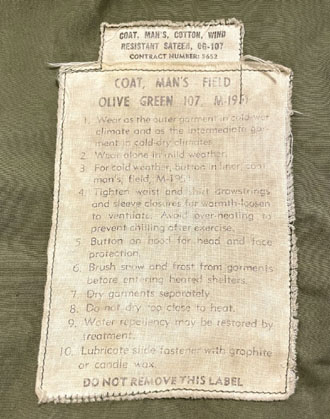 COAT, MAN'S, COTTON, WIND
RESISTANT SATEEN, OG-107
CONTRACT NUMBER: 5652
COAT, MAN'S FIELD
OLIVE GREEN 107, M-1951
1. Wear as the outer garment in cold-wet
climate and as the intermediate gar-
ment in cold-dry climates.
2. Wear alone in mild weather.
3. For cold weather, button in liner, coat,
man's, field, M-1951.
4. Tighten waist and skirt drawstrings
and sleeve closures for warmth-loosen
to ventilate. Avoid over-heating to
prevent chilling after exercise.
5. Button on hood for head and face
protection.
6. Brush snow and frost from garments
before entering heated shelters.
7. Dry garments separately.
8. Do not dry too close to heat.
9. Water repellency may be restored by
treatment.
10. Lubricate slide fastener with graphite
or candle wax.
DO NOT REMOVE THIS LABEL